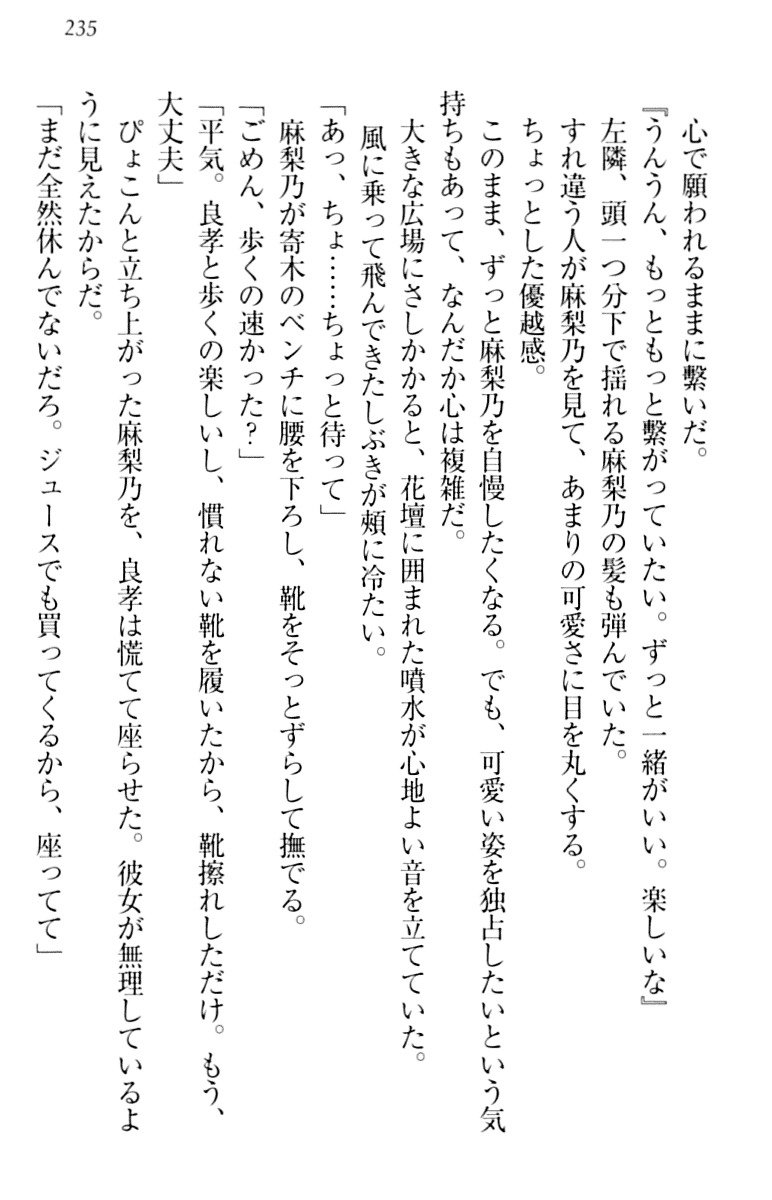 235
心で願われるままに繋いだ。
『うんうん、もっともっと繋がっていたい。ずっと一緒がいい。楽しいな』
左隣、頭一つ分下で揺れる麻梨乃の髪も弾んでいた。
すれ違う人が麻梨乃を見て、あまりの可愛さに目を丸くする。
ちょっとした優越感。
このまま、ずっと麻梨乃を自慢したくなる。でも、可愛い姿を独占したいという気
持ちもあって、なんだか心は複雑だ。
大きな広場にさしかかると、花壇に囲まれた噴水が心地よい音を立てていた。
風に乗って飛んできたしぶきが頬に冷たい。
「あっ、ちょ……ちょっと待って」
麻梨乃が寄木のベンチに腰を下ろし、靴をそっとずらして撫でる。
「ごめん、歩くの速かった？」
「平気。良孝と歩くの楽しいし、慣れない靴を履いたから、靴擦れしただけ。もう、
大丈夫」
ぴょこんと立ち上がった麻梨乃を、良孝は慌てて座らせた。彼女が無理しているよ
うに見えたからだ。
「まだ全然休んでないだろ。ジュースでも買ってくるから、座ってて」